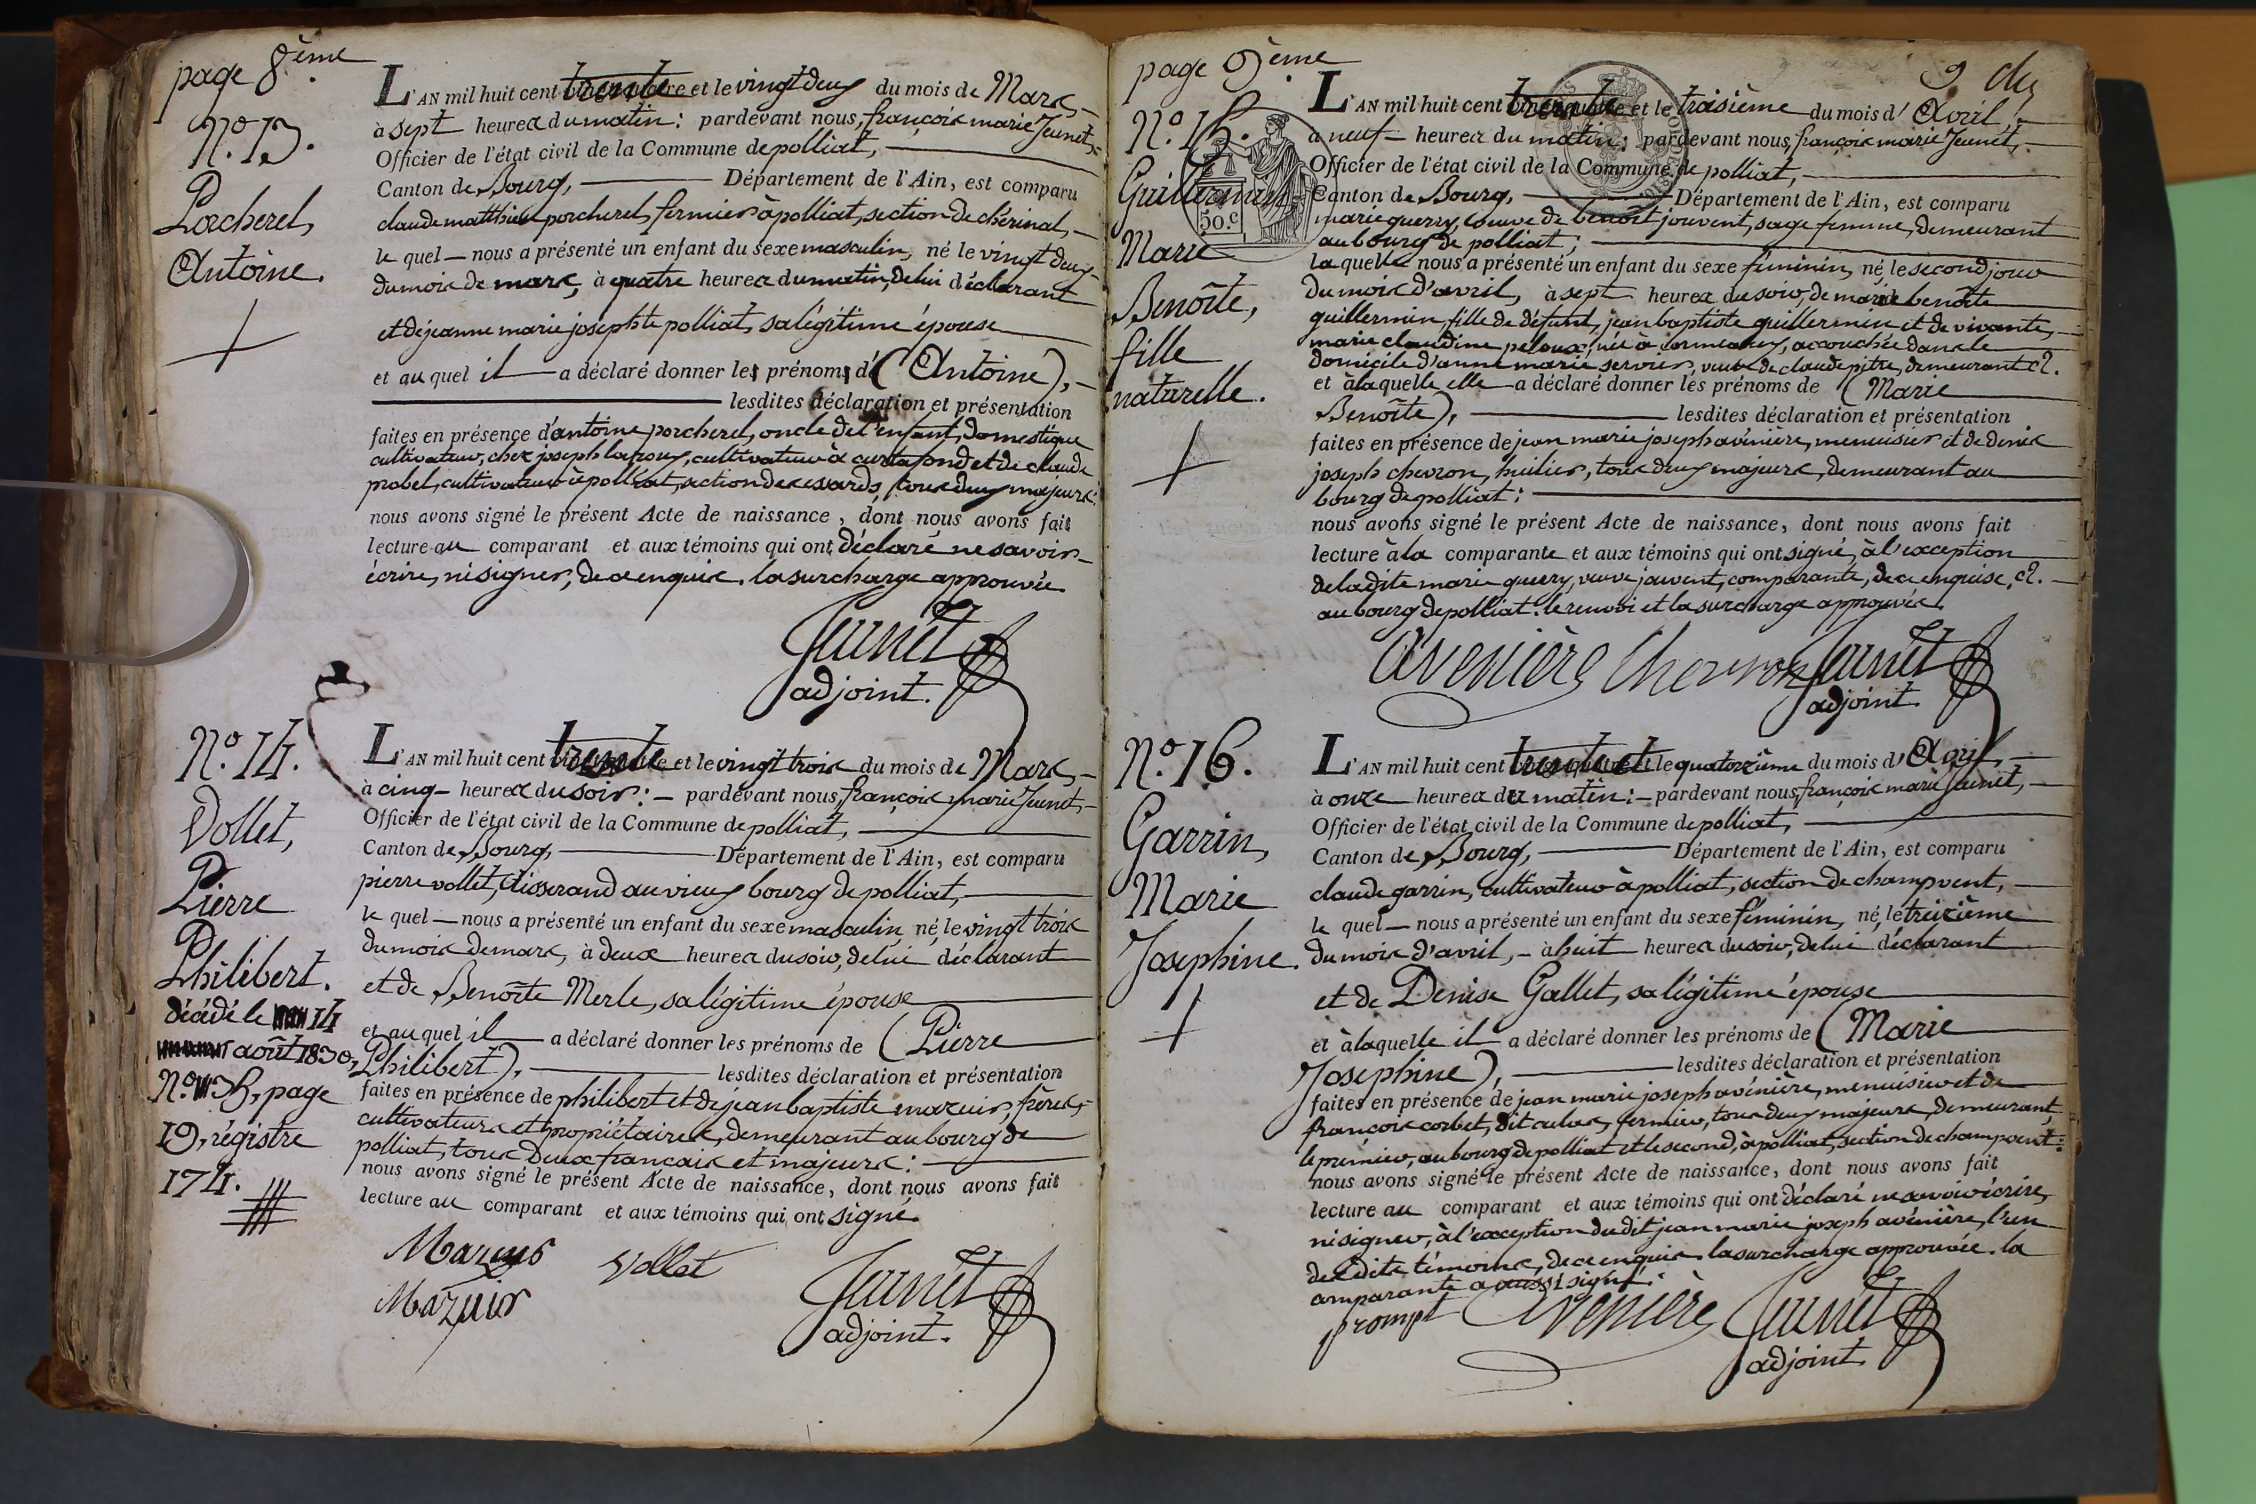 page 8ème
N.º 13.
Porcherel,
Antoine.
L'AN mil huit cent trente et le vingt deux du mois de Mars,
à sept heures du matin : pardevant nous, françois marie Jeunet,
Officier de l'état civil de la Commune de polliat,
Canton de Bourg, Département de l'Ain, est comparu
claude matthieu porcherel, fermier à polliat, section de chérinal,
le quel nous a présenté un enfant du sexe masculin, né le vingt deux
du mois de mars, à quatre heures du matin, de lui déclarant
et de jeanne marie josephte polliat, sa légitime épouse
et au quel il a déclaré donner les prénoms d' (Antoine),
lesdites déclaration et présentation
faites en présence d'antoine porcherel, oncle de l'enfant, domestique
cultivateur, chez joseph lafroux, cultivateur à curtafond et de claude
probel, cultivateur à polliat, section des essards, tous deux majeurs :
nous avons signé le présent Acte de naissance, dont nous avons fait
lecture au comparant et aux témoins qui ont déclaré ne savoir
écrire, ni signer, de ce enquis. la surcharge approuvée
Jeunet
adjoint.
N.º 14.
Vollet,
Pierre
Philibert.
décédé le 14
août 1830,
N.º 75, page
19, régistre
174.
L'AN mil huit cent trente et le vingt trois du mois de Mars,
à cinq heures du soir : pardevant nous, françois marie Jeunet,
Officier de l'état civil de la Commune de polliat,
Canton de Bourg, Département de l'Ain, est comparu
pierre vollet, tisserand au vieux bourg de polliat,
le quel nous a présenté un enfant du sexe masculin, né le vingt trois
du mois de mars, à deux heures du soir, de lui déclarant
et de Benoîte Merle, sa légitime épouse
et au quel il a déclaré donner les prénoms de (Pierre
Philibert), lesdites déclaration et présentation
faites en présence de philibert et de jean baptiste mazuir, frères,
cultivateurs et propriétaires, demeurant au bourg de
polliat, tous deux français et majeurs :
nous avons signé le présent Acte de naissance, dont nous avons fait
lecture au comparant et aux témoins qui ont signé.
Mazuir Vollet
Mazuir Jeunet
adjoint.
page 9ème
9 du
N.º 15.
Guillermin
Marie
Benoîte,
fille
naturelle.
50.c
L'AN mil huit cent trente et le troisième du mois d'Avril,
à neuf heures du matin : pardevant nous, françois marie Jeunet,
Officier de l'état civil de la Commune de polliat,
Canton de Bourg, Département de l'Ain, est comparu
marie guerry, veuve de benoît jouvent, sage femme, demeurant
au bourg de polliat,
la quelle nous a présenté un enfant du sexe féminin, né le second jour
du mois d'avril, à sept heures du soir, de marie benoîte
guillermin, fille de défunt, jean baptiste guillermin et de vivante,
marie claudine peloux, née à accouchée dans le
domicile d'anne marie servier, veuve de claude pitre, demeurant
et à la quelle elle a déclaré donner les prénoms de (Marie
Benoîte), lesdites déclaration et présentation
faites en présence de jean marie joseph avénière, menuisier et de denis
joseph chevron, huilier, tous deux majeurs, demeurant au
bourg de polliat :
nous avons signé le présent Acte de naissance, dont nous avons fait
lecture à la comparante et aux témoins qui ont signé, à l'exception
de ladite marie guerry, veuve jouvent, comparante, de ce enquise,
au bourg de polliat. le renvoi et la surcharge approuvés.
Avenière Chevron Jeunet
adjoint
N.º 16.
Garrin,
Marie
Josephine.
L'AN mil huit cent trente et le quatorzième du mois d'Avril,
à onze heures du matin : pardevant nous françois marie Jeunet,
Officier de l'état civil de la Commune de polliat,
Canton de Bourg, Département de l'Ain, est comparu
claude garrin, cultivateur à polliat, section de champvent,
le quel nous a présenté un enfant du sexe féminin, né le treizième
du mois d'avril, à huit heures du soir, de lui déclarant
et de Denise Gallet, sa légitime épouse
et à laquelle il a déclaré donner les prénoms de (Marie
Josephine), lesdites déclaration et présentation
faites en présence de jean marie joseph avénière, menuisier et de
françois corbet, dit fermier, tous deux majeurs, demeurant,
le premier, au bourg de polliat et le second, à polliat, section de champvent :
nous avons signé le présent Acte de naissance, dont nous avons fait
lecture au comparant et aux témoins qui ont déclaré ne savoir écrire,
ni signer, à l'exception dudit jean marie joseph avénière, l'un
desdits témoins, de ce enquis. la surcharge approuvée. la
comparante a aussi signé.
prompt Avenière Jeunet
adjoint